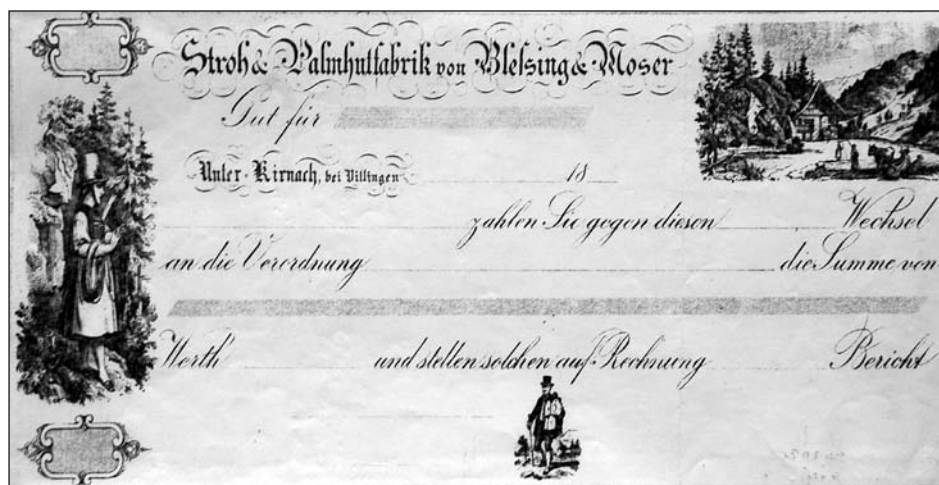 Stroh & Palmhutfabrik von Blessing & Moser
Gut für
Unter-Kirnach, bei Villingen 18
zahlen Sie gegen diesen Wechsel
an die Verordnung die Summe von
Werth und stellen solchen auf Rechnung Bericht